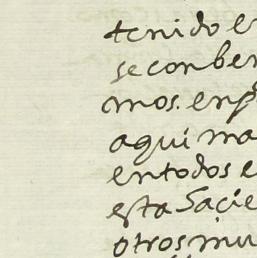 tenido e
seconber
mos. enp
aqui ma
entodos e
esta Sacie
otros mu